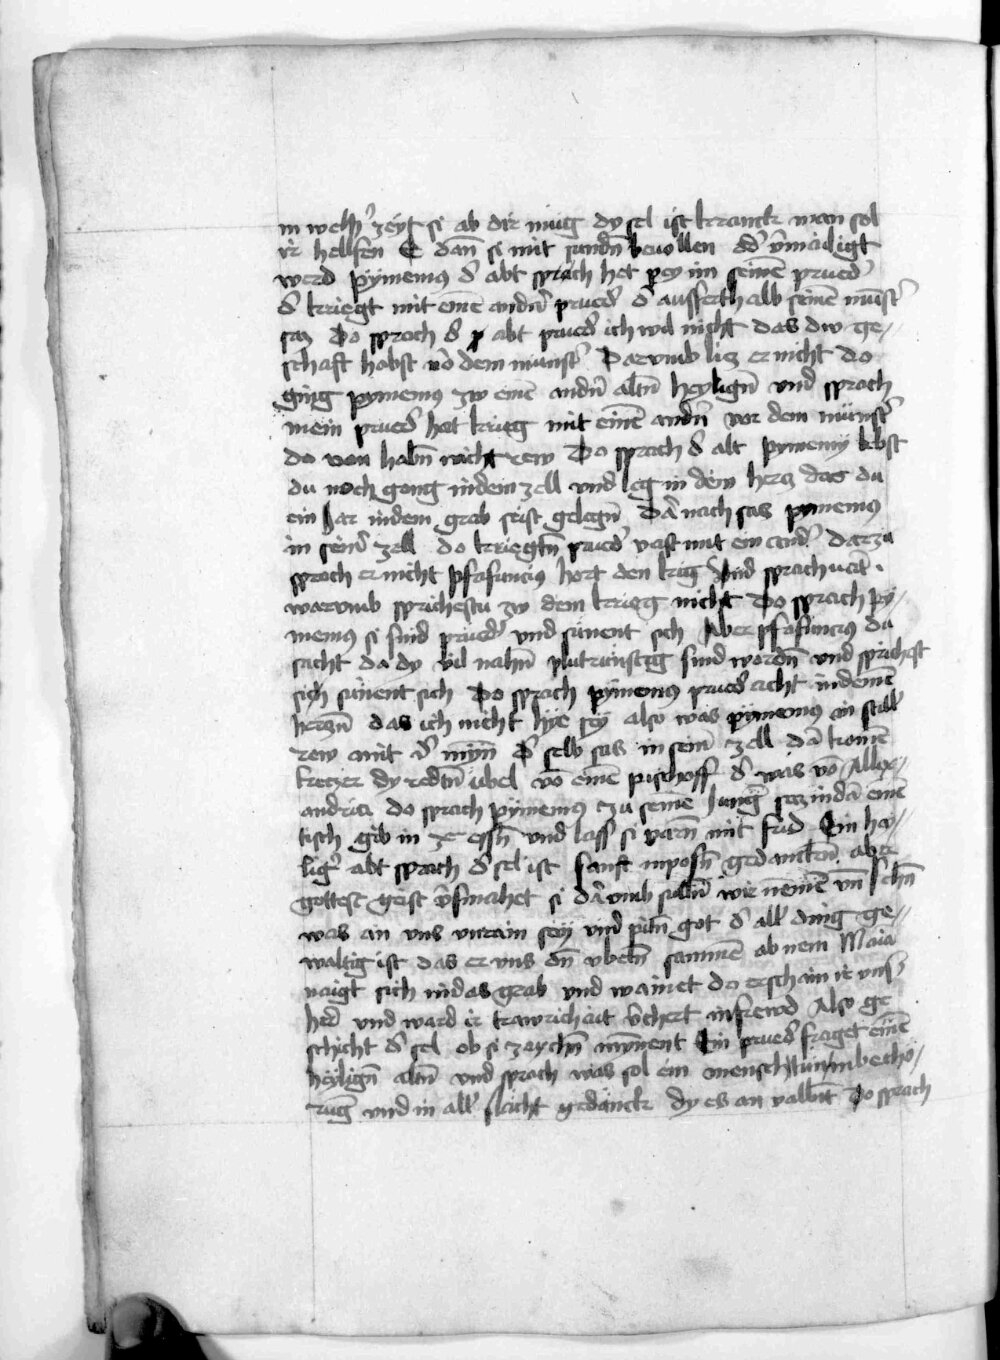 in welh' zeyt si ab dir müg dy sel ist kranck man sol
ir hellfen E dan̄ si mit sundn̄ bevollen od' v̄mailigt
werd pÿmemus d' abt sprach het pey im seinē prued'
d' kriegt mit einē andn̄ prued' d' ausserthalb seinē münst'
sas Do sprach d' abt prued' ich wil nicht das dw ge⸗
schaft habst vō dem münst' Darvmb lis er nicht do
ging pymemus zw einē andn̄ altn̄ heylign̄ und sprach
mein prued' hat krieg mit einē andn̄ vor dem münst'
do von habn̄ nicht rew Do sprach d' alt pymemy lebst
du noch gong in dein zell und leg in dein hercz das du
ein Jar in dem grab seist gelegn̄ Dar nach sas pymemus
in sein' zell do kriegtn̄ prued' vast mit ein and' Darzu
sprach er nicht pfafuncius hort den krig Und sprach vat'
warvmb sprichestu zw dem krieg nicht Do sprach py⸗
memus si sind prued' und sünent sich Aber pfafuncius du
sacht da dy vil nahn̄ plutrünstig sind wordn̄ und sprichst
sich sünent sich Do sprach pymemus prued' acht in deinē
herczn̄ das ich nicht hye sey also was pymemus in still'
rew mit d' mÿn̄ D' selb sas in sein' zell da komē
keczer dy redtn̄ übel vō einē pischoff d' was vō Allex⸗
andria do sprach pymemus zu seinē Jung' secz in dar einē
tisch gib in ze essn̄ und lass si varn̄ mit frid Ein hai⸗
lig' abt sprach d' sel ist sanft in posn̄ gedanckn̄ aber
gottest geist v̄smahet si darvmb sulln̄ wir nemē vn̄ sehn̄
was an vns vnrain sey vnd pitn̄ got d' all' ding ge⸗
waltig ist das er vns dn̄ vbeln̄ sammē ab nem Maria
naigt sich in das grab und wainet do erschain ir uns'
her' und ward ir trawrichait v̄chert in frewd Also ge
schicht d' sel ob si zaychn̄ mynnent Ein prued' fraget einē
heyligē altn̄ und sprach was sol ein mensch tun in bechö⸗
rūg und in all' slacht gedanck dy es an vallent Do sprach